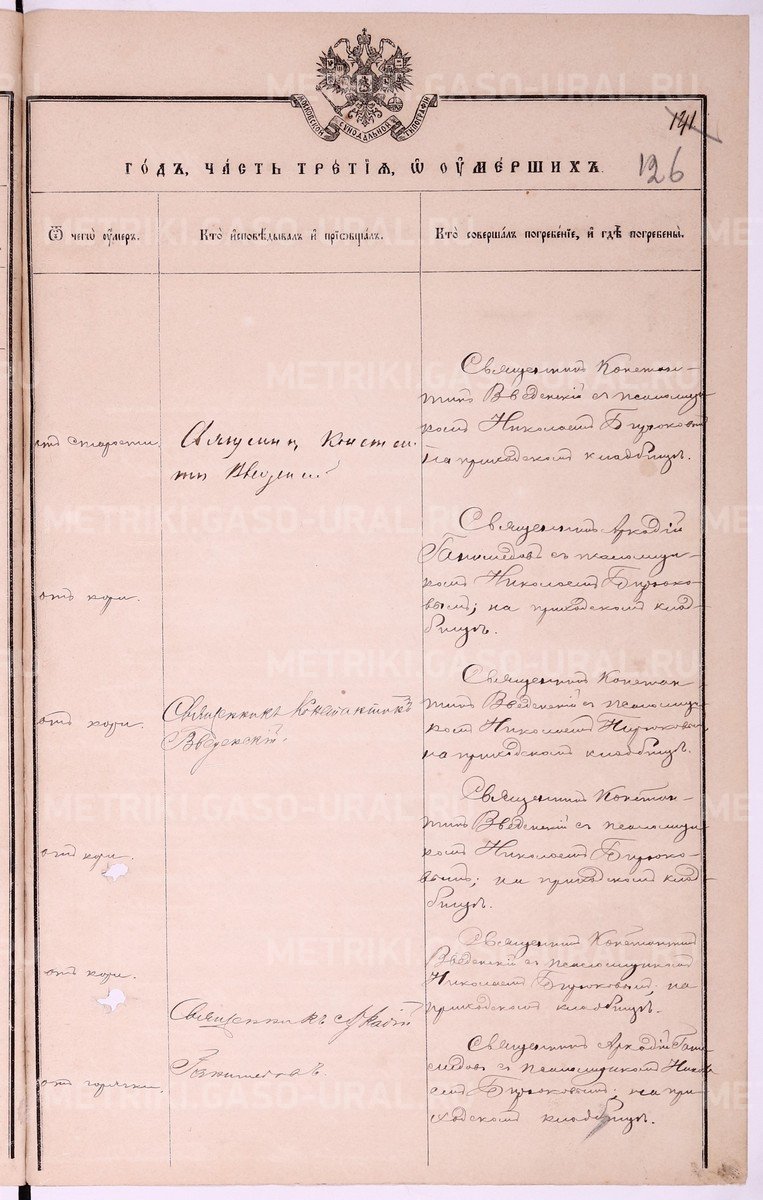 МОСКОВСКОЙ СѴНОДАЛЬНОЙ ТИПОГРАФІИ
141
126
ГОДЪ, ЧАСТЬ ТРЕТІѦ, Ѡ ОУМЕРШИХЪ.
Ѿ чегѡ оумеръ.
Кто исповѣдывалъ и пріѡбщалъ.
Кто совершалъ погребеніе, и гдѣ погребены.
отъ старости.
Священникъ Констан
тинъ Введенскій
Священникъ Констан-
тинъ Введенскій съ псаломщи
комъ Николаемъ Бирюковымъ
на приходскомъ кладбищѣ.
отъ кори.
Священникъ Аркадій
Ганимедовъ съ псаломщи-
комъ Николаемъ Бирюко-
вымъ; на приходскомъ клад-
бищѣ.
отъ кори.
Священникъ Константинъ
Введенскій.
Священникъ Констан
тинъ Введенскій съ псаломщи
комъ Николаемъ Бирюковым
на приходскомъ кладбищѣ.
отъ кори.
Священникъ Констан-
тинъ Введенскій съ псаломщи
комъ Николаемъ Бирюко-
вымъ; на приходскомъ клад-
бищѣ.
отъ кори.
Священникъ Константинъ
Введенскій съ псаломщикомъ
Николаемъ Бирюковымъ; на
приходскомъ кладбищѣ.
отъ горячки.
Священникъ Аркадій
Ганимедовъ.
Священникъ Аркадій Гани
медовъ съ псаломщикомъ Никола
емъ Бирюковымъ; на при
ходскомъ кладбищѣ.
METRIKI.GASO-URAL.RU